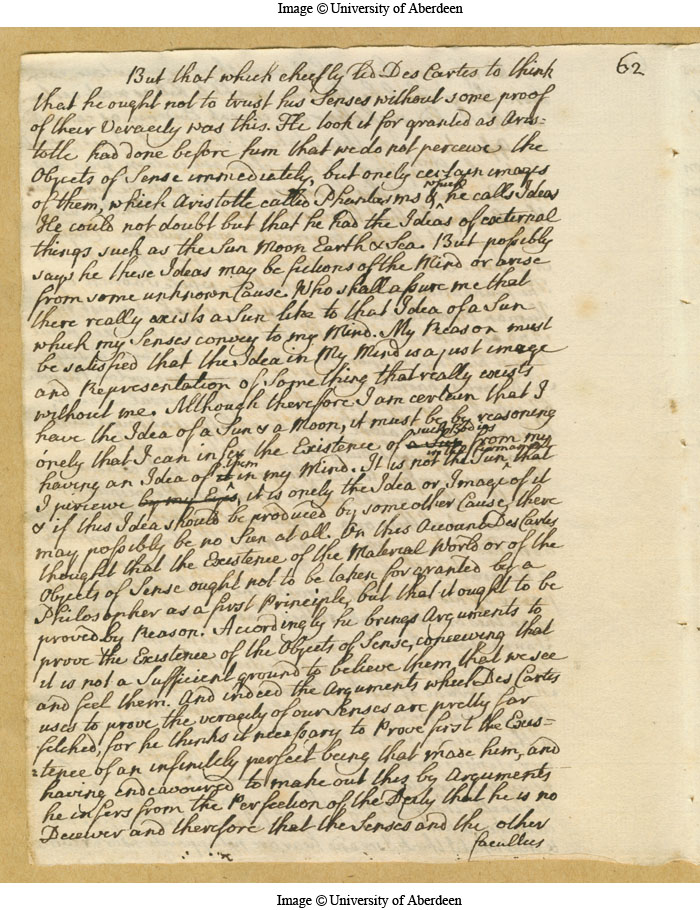 Image © University of Aberdeen
62
But that which cheefly led Des Cartes to think
that he ought not to trust his Senses without some proof
of their Veracity was this. He took it for granted as Aris=
totle had done before him that we do not perceive the
Objects of Sense immediately, but onely certain images
of them, which Aristotle called Phantasms & which he calls Ideas
He could not doubt but that he had the Ideas of external
things such as the Sun Moon Earth & Sea. But possibly
says he these Ideas may be fictions of the Mind or arise
from some unknown Cause. Who shall assure me that
there really exists a Sun like to that Idea of a Sun
which my Senses convey to my Mind. My Reason must
be satisfied that the Idea in My Mind is a just image
and Representation of Something that really exists
without me. Although therefore I am certain that I
have the Idea of a Sun & a Moon, it must be by reasoning
onely that I can infer the Existence of a Sun such Bodies from my
having an Idea of it them in my Mind. It is not the Sun in the firmament that
I perceive by my Eyes, it is onely the Idea or Image of it
& if this Idea should be produced by some other Cause, there
may possibly be no Sun at all. On this Account Des Cartes
thought that the Existence of the Material World or of the
Objects of Sense ought not to be taken for granted by a
Philosopher as a first Principle, but that it ought to be
proved by Reason. Accordingly he brings Arguments to
prove the Existence of the Objects of Sense, conceiving that
it is not a Sufficient ground to believe them, that we see
and feel them. And indeed the Arguments which Des Cartes
uses to prove the veracity of our Senses are pretty far
fetched, for he thinks it necessary to Prove first the Exis=
=tence of an infinitely perfect being that made him, and
having endeavoured to make out this by Arguments
he infers from the Perfection of the Deity that he is no
Deceiver and therefore that the Senses and the other
faculties
Image © University of Aberdeen